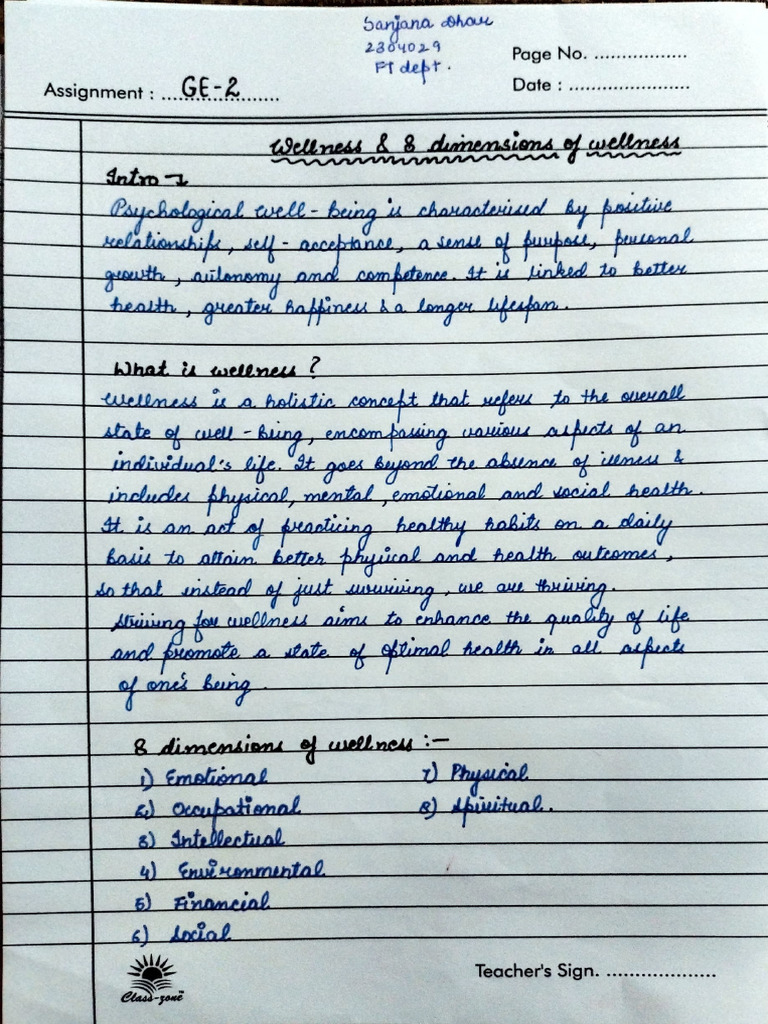 Sanjana Dhar
2304029
FT dept.
Page No. ................
Assignment : ... GE-2 ......
Date : .....................
Wellness & 8 dimensions of wellness
Intro →
Psychological well-being is characterised by positive
relationships, self-acceptance, a sense of purpose, personal
growth, autonomy and competence. It is linked to better
health, greater happiness & a longer lifespan.
What is wellness?
Wellness is a holistic concept that refers to the overall
state of well-being, encompassing various aspects of an
individual's life. It goes beyond the absence of illness &
includes physical, mental, emotional and social health.
It is an act of practicing healthy habits on a daily
basis to attain better physical and health outcomes,
so that instead of just surviving, we are thriving.
Striving for wellness aims to enhance the quality of life
and promote a state of optimal health in all aspects
of one's being.
8 dimensions of wellness :-
1) Emotional
7) Physical
2) Occupational
8) Spiritual.
3) Intellectual
4) Environmental
5) Financial
6) Social
Teacher's Sign. ...................
Class-zone™